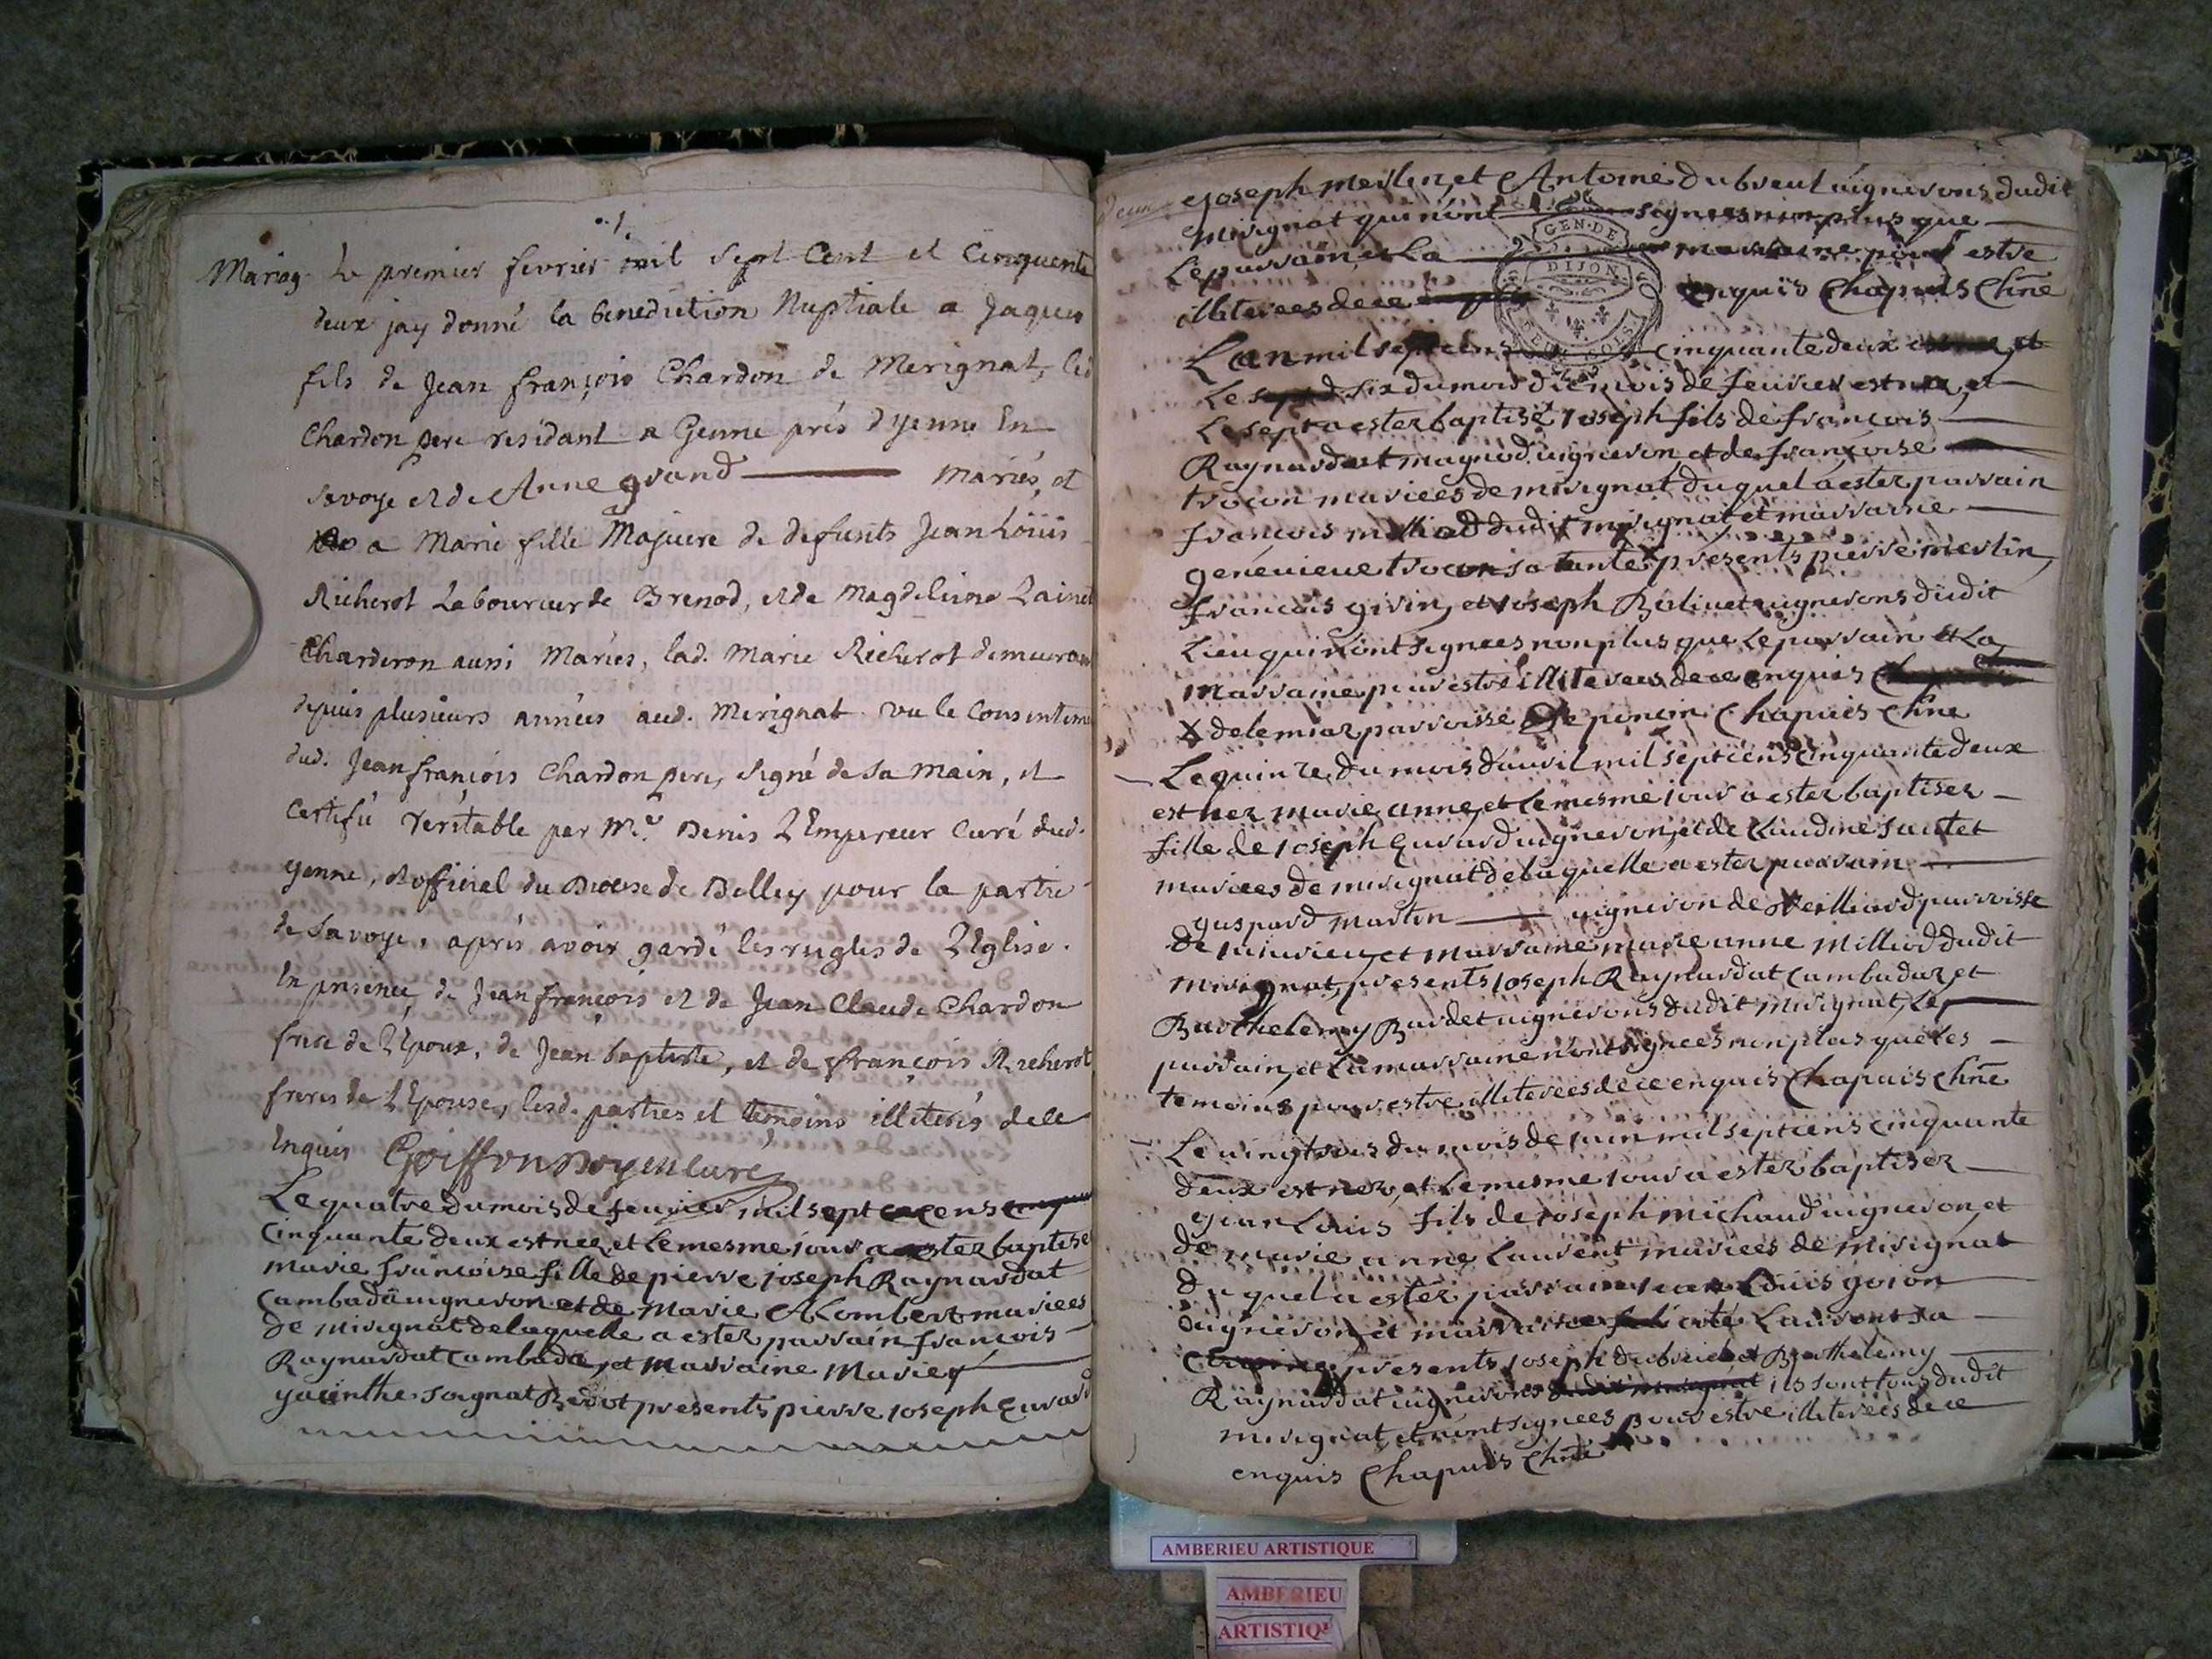 .1.
Mariag. Le premier fevrier mil sept Cent et Cinquente
deux jay donné la benediction Nuptiale a Jaques
fils de Jean françois Chardon de Merignat, led
Chardon pere residant a Genne prés dyenne En
Savoye et de Anne grand mariés, et
a Marie fille Majeure de defunts Jean Loüis
Richerot Laboureur de Brenod, et de Magdeleine
Charderon aussi Mariés, lad. Marie Richerot demeurant
depuis plusieurs années aud. Merignat vu le Consenteme
dud. Jean françois Chardon pere, signé de sa main, et
Certifié veritable par Mre Denis L'Empereur Curé dud.
yenne, et official du Diocese de Belley pour la partie
de Savoye, aprés avoir gardé les regles de L'Eglise.
En presence de Jean françois et de Jean Claude Chardon
frere de L'Epoux, de Jean baptiste, et de françois Richerot
freres de L'Epouse, lesd. parties et temoins illiterés de ce
Enquis Goiffon Doyen Curé
Le quatre du mois de feuvier mil sept cens
Cinquante deux est nee, et le mesme iour a ester baptise
marie francoise fille de pierre ioseph Raynardat
Cambada uigneron et de Marie Alombert mariees
de mirignat de laquelle a ester parrain francois
Raynardat Cambada, et marraine Marie
yacinthe soignat Berot presents pierre ioseph Eurard
deux Joseph merlin, et Antoine dubreul uignerons dudit
mirignat qui n'ont signees non plus que
Le parrain et La marraine pour estre
illiterees de ce enquis Chapuis Chne
GEN. DE
DIJON
DEUX SOLS
L'an mil sept cens cinquante deux et
Le six du mois de feurier est nee, et
Le sept a ester baptisé ioseph fils de francois
Raynardat magniod uigneron et de francoise
trocon mariees de mirignat duquel a ester parrain
francois milliod dudit mirignat et marraine
genevieue trocon sa tante X presents pierre merlin,
francois girin, et ioseph Baliuet uignerons dudit
Lieu qui n'ont signees non plus que Le parrain et La
marraine pour estre illiterees de ce enquis
X de lemiaz parroisse de poncin Chapuis Chne
Le quinze du mois d'auril mil sept cens cinquante deux
est nee marie anne, et le mesme iour a ester baptisez
fille de ioseph Eurard uigneron, et de Claudine sautet
mariees de mirignat de laquelle a ester parrain
gaspard martin uigneron de Veilliard parroisse
de iuiurieu, et marraine marie anne milliod dudit
mirignat, presents ioseph Raynardat Cambadaz, et
Barthelemy Bardet uignerons dudit mirignat, Le
parrain, et La marraine n'ont signees non plus que Les
temoins pour estre illiterees de ce enquis Chapuis Chne
Le uingt trois du mois de iuin mil sept cens cinquante
deux est nez, et le mesme iour a ester baptisez
jean Louis fils de ioseph michaud uigneron, et
de marie anne Laurent mariees de mirignat
duquel a ester parrain iean Louis goion
uigneron et marraine Laurent sa
presents ioseph dubreul et Barthelemy
Raynardat uignerons ils sont tous dudit
mirignat et n'ont signees pour estre illiterees de ce
enquis Chapuis Chne
AMBERIEU ARTISTIQUE
AMBERIEU
ARTISTIQ